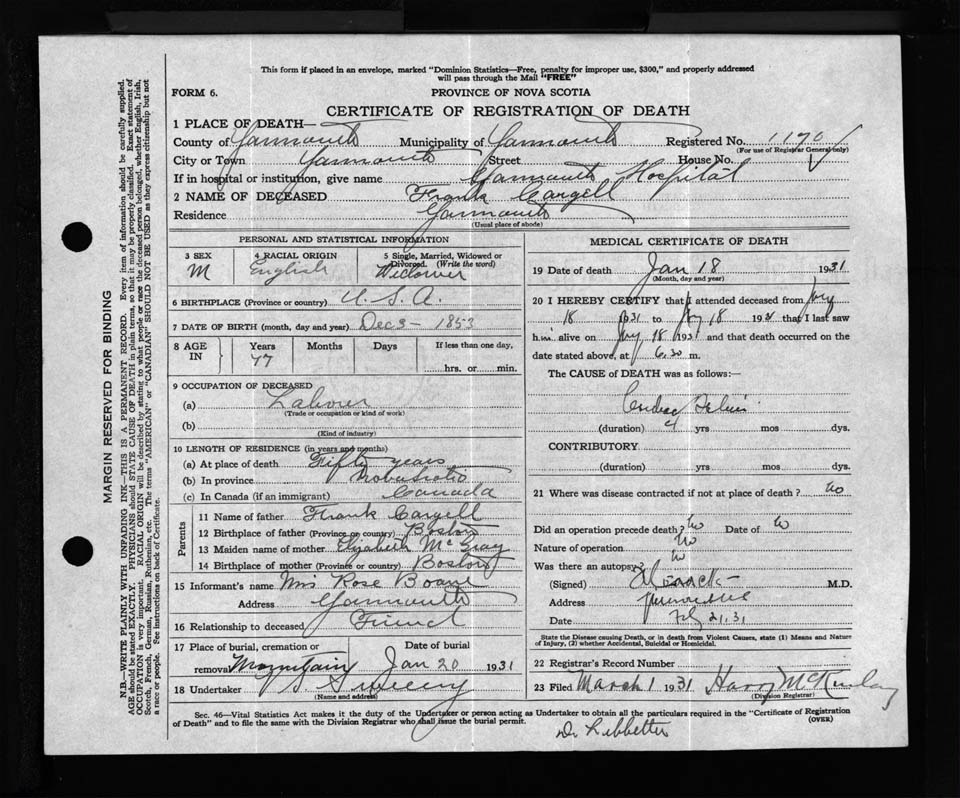 This form if placed in an envelope, marked "Dominion Statistics—Free, penalty for improper use, $300," and properly addressed
will pass through the Mail "FREE"
FORM 6.
PROVINCE OF NOVA SCOTIA
CERTIFICATE OF REGISTRATION OF DEATH
1 PLACE OF DEATH—
County of Yarmouth Municipality of Yarmouth Registered No. 1170
(For use of Registrar General only)
City or Town Yarmouth Street House No.
If in hospital or institution, give name Yarmouth Hospital
2 NAME OF DECEASED Frank Cargell
Residence Yarmouth
(Usual place of abode)
PERSONAL AND STATISTICAL INFORMATION
3 SEX 4 RACIAL ORIGIN 5 Single, Married, Widowed or
Divorced. (Write the word)
M English Widower
6 BIRTHPLACE (Province or country) U.S.A.
7 DATE OF BIRTH (month, day and year) Dec 3 - 1853
8 AGE IN Years Months Days If less than one day,
77 hrs. or min.
9 OCCUPATION OF DECEASED
(a) Labour
(Trade or occupation or kind of work)
(b)
(Kind of industry)
10 LENGTH OF RESIDENCE (in years and months)
(a) At place of death Fifty years
(b) In province
(c) In Canada (if an immigrant) Canada
Parents
11 Name of father Frank Cargell
12 Birthplace of father (Province or country) Boston
13 Maiden name of mother Elizabeth McGray
14 Birthplace of mother (Province or country) Boston
15 Informant's name Mrs Rose
Address Yarmouth
16 Relationship to deceased Friend
17 Place of burial, cremation or Date of burial
removal Mountain Jan 20 1931
18 Undertaker Sweeny
(Name and address)
MEDICAL CERTIFICATE OF DEATH
19 Date of death Jan 18 1931
(Month, day and year)
20 I HEREBY CERTIFY that I attended deceased from
18 1931 to 18 1931 that I last saw
him alive on 18 1931 and that death occurred on the
date stated above, at 6.30 m.
The CAUSE of DEATH was as follows:—
(duration) yrs mos dys.
CONTRIBUTORY
(duration) yrs mos dys.
21 Where was disease contracted if not at place of death? no
Did an operation precede death? no Date of
Nature of operation no
Was there an autopsy? no
(Signed) M.D.
Address
Date 21.31
State the Disease causing Death, or in death from Violent Causes, state (1) Means and Nature
of Injury, (2) whether Accidental, Suicidal or Homicidal.
22 Registrar's Record Number
23 Filed March 1 1931 Harry McKinlay
(Division Registrar)
Sec. 46—Vital Statistics Act makes it the duty of the Undertaker or person acting as Undertaker to obtain all the particulars required in the "Certificate of Registration
of Death" and to file the same with the Division Registrar who shall issue the burial permit.
(OVER)
Dr Lebbetter
MARGIN RESERVED FOR BINDING
N.B.—WRITE PLAINLY WITH UNFADING INK—THIS IS A PERMANENT RECORD. Every item of information should be carefully supplied.
AGE should be stated EXACTLY. PHYSICIANS should STATE CAUSE OF DEATH in plain terms, so that it may be properly classified. Exact statement of
OCCUPATION is very important. RACIAL ORIGIN will be described by stating to what people or race the deceased person belonged, whether English, Irish,
Scotch, French, German, Russian, Ruthenian, etc. The terms "AMERICAN" or "CANADIAN" SHOULD NOT BE USED as they express citizenship but not
a race or people. See instructions on back of Certificate.